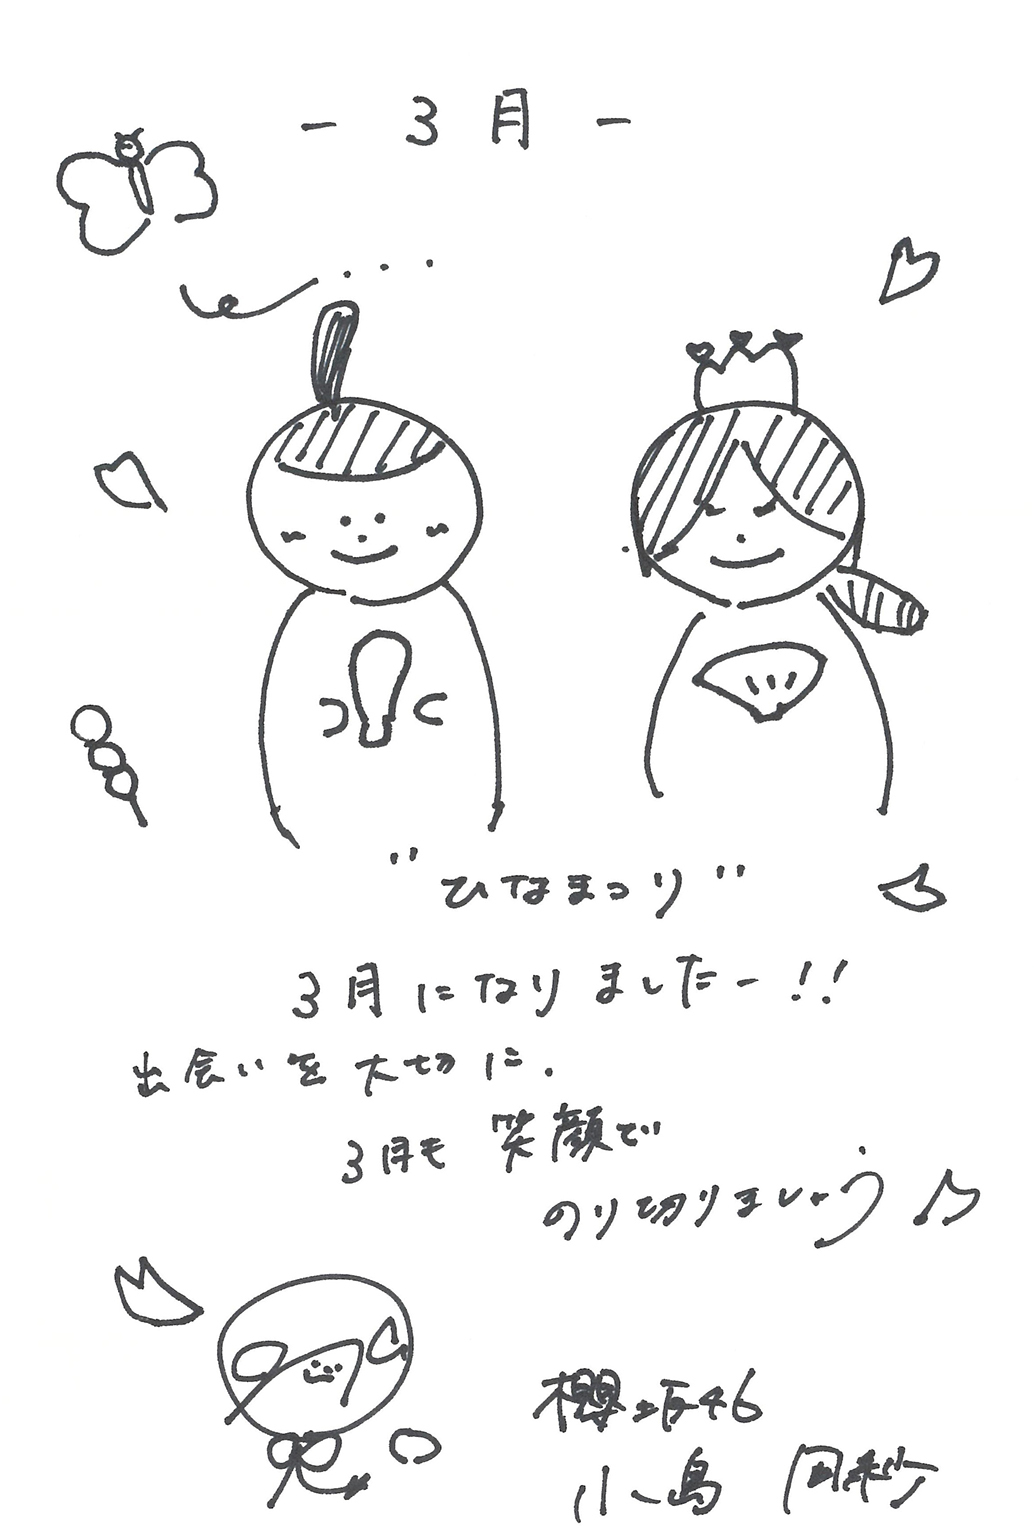 - 3月 -
"ひなまつり"
3月になりましたー!!
出会いを大切に.
3月も笑顔で
のり切りましょう♪
櫻坂46
小島 凪紗